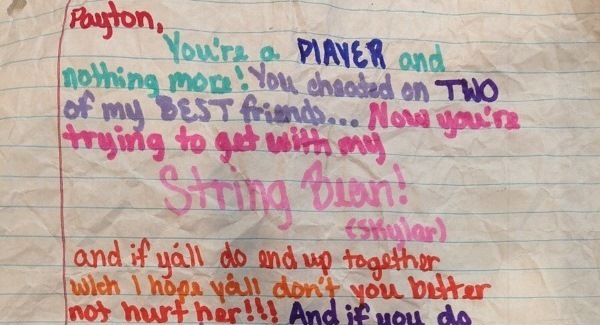 Payton,
You're a PLAYER and
nothing more! You cheated on TWO
of my BEST friends... Now you're
trying to get with my
String Bean!
(Skylar)
and if yáll do end up together
wich I hope yáll don't you better
not hurt her!!! And if you do